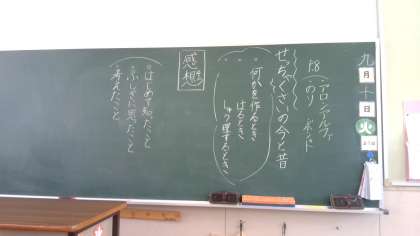 九月十日火
アロンアルファ
のり ボンド
せっちゃくざいの今と昔
何かを作るとき
はるとき
しゅう理するとき
感想
はじめて知ったこと
ふしぎに思ったこと
考えたこと